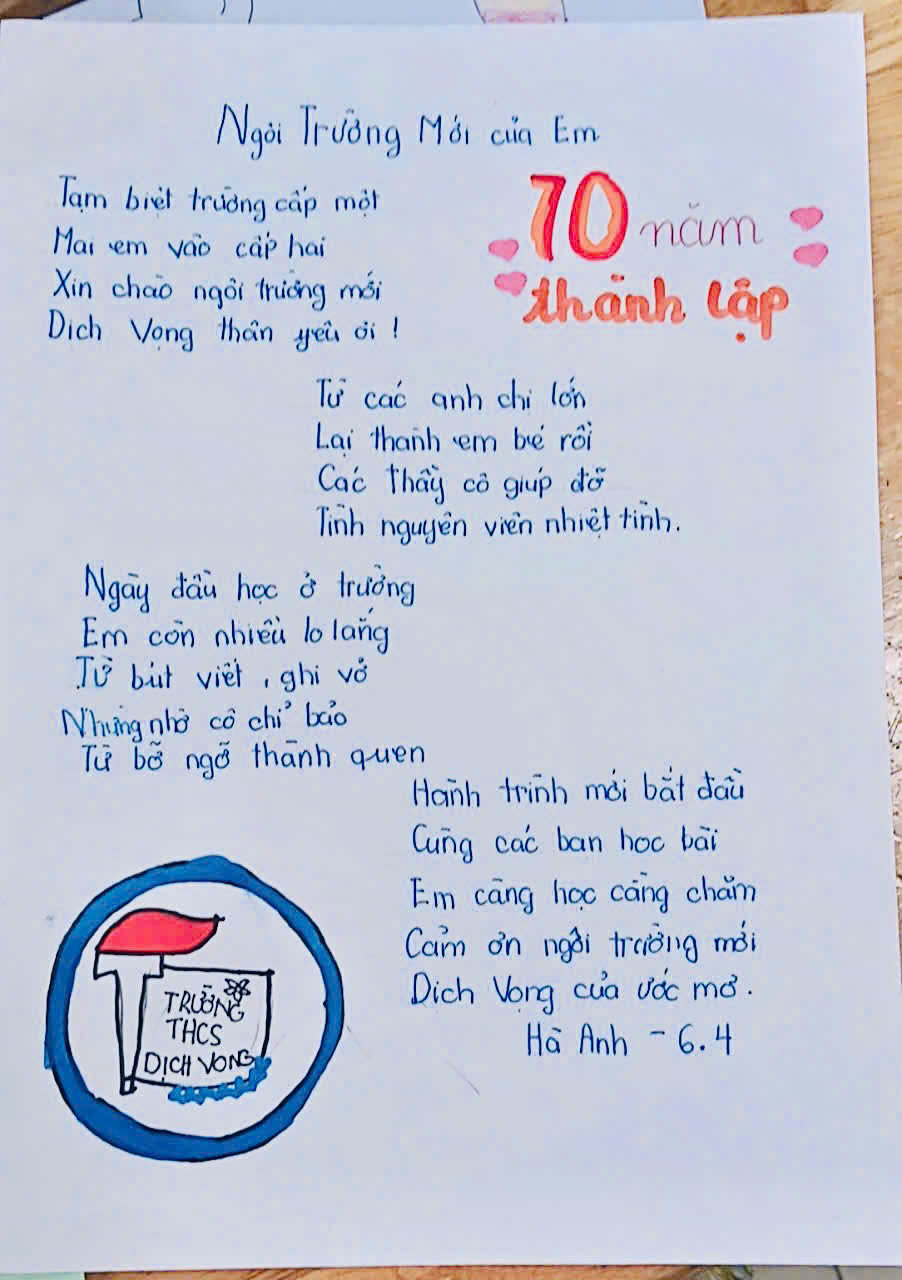 Ngôi Trường Mới của Em
Tạm biệt trường cấp một
Mai em vào cấp hai
Xin chào ngôi trường mới
Dịch Vọng thân yêu ơi !
70 năm
thành lập
Từ các anh chị lớn
Lại thành em bé rồi
Các thầy cô giúp đỡ
Tình nguyện viên nhiệt tình.
Ngày đầu học ở trường
Em còn nhiều lo lắng
Từ bút viết, ghi vở
Nhưng nhờ cô chỉ bảo
Từ bỡ ngỡ thành quen
Hành trình mới bắt đầu
Cùng các bạn học bài
Em càng học càng chăm
Cảm ơn ngôi trường mới
Dịch Vọng của ước mơ.
Hà Anh - 6.4
TRƯỜNG
THCS
DỊCH VỌNG